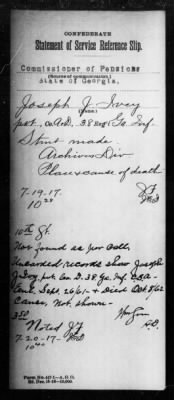 CONFEDERATE
Statement of Service Reference Slip.
Commissioner of Pensions
(Source of communication.)
State of Georgia.
Joseph J. Ivey
(Name.)
pvt., Co. A&D, 38 Regt Ga. Inf.
Stmt made
Archives Div.
Place & cause of death
7-19-17.
10 28
10th Ga.
Not found as per
Unearded records show Joseph
J. Ivy, pvt. Co. D. 38 Ga. Inf. CSA
Enl. Sept 26/61 & Died Oct 8/62
Cause, Not shown-
350
Noted JJ
7-20-17-
10 40
Form No. 447-1—A. G. O.